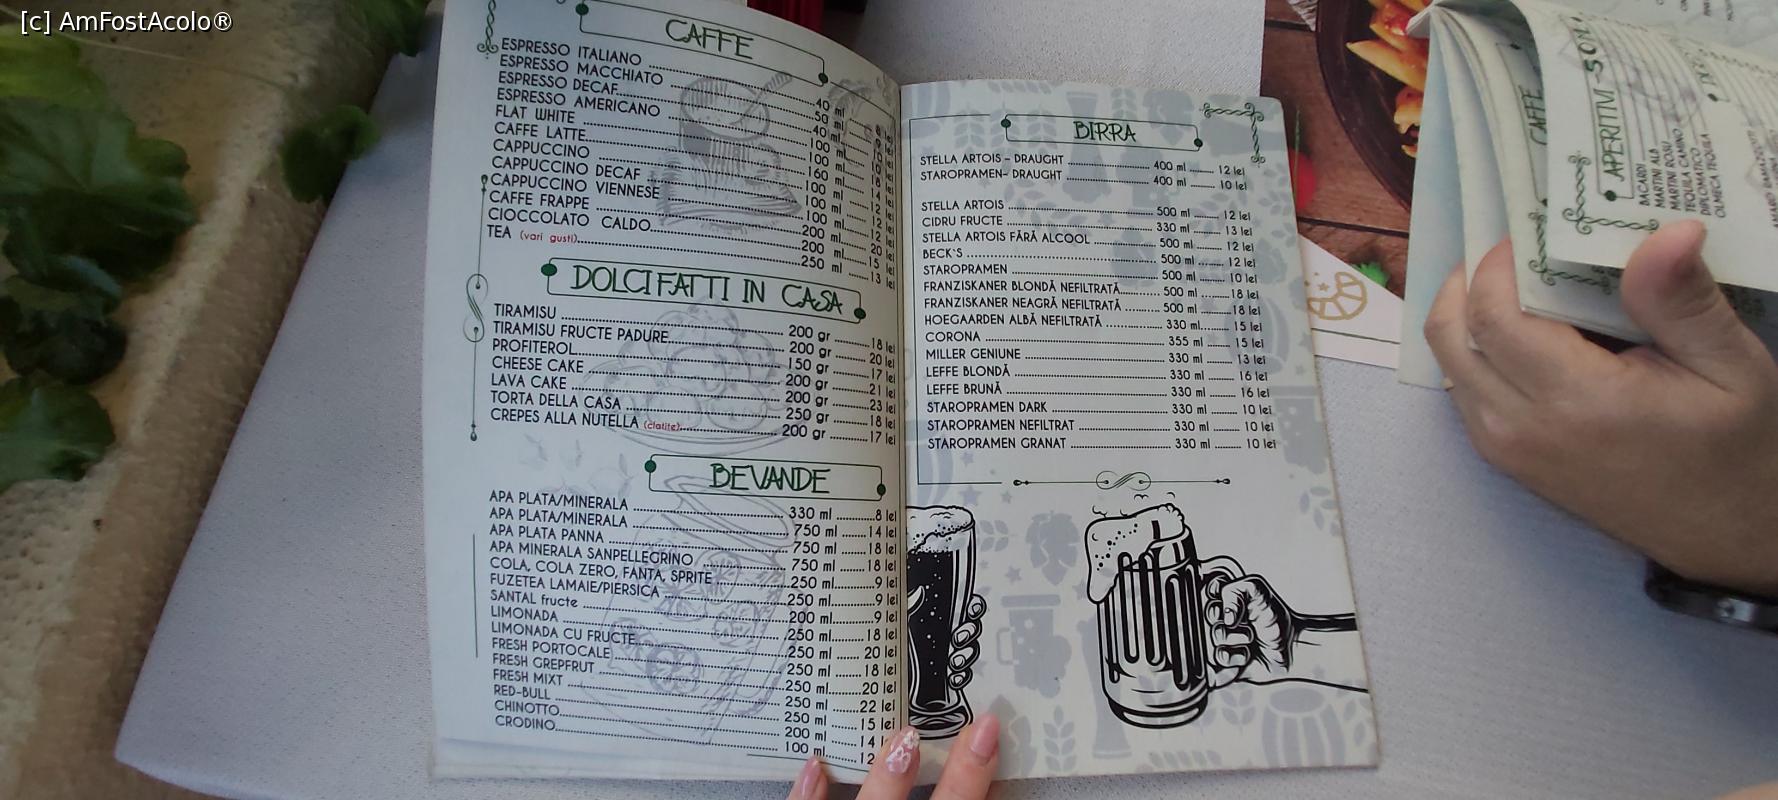 [c] AmFostAcolo®
CAFFE
ESPRESSO ITALIANO 40 ml 8 lei
ESPRESSO MACCHIATO 50 ml
ESPRESSO DECAF 40 ml
ESPRESSO AMERICANO 100 ml
FLAT WHITE 100 ml
CAFFE LATTE 160 ml
CAPPUCCINO 100 ml
CAPPUCCINO DECAF 100 ml 12 lei
CAPPUCCINO VIENNESE 100 ml 12 lei
CAFFE FRAPPE 200 ml 20 lei
CIOCCOLATO CALDO 200 ml 15 lei
TEA (vari gusti) 250 ml 13 lei
DOLCI FATTI IN CASA
TIRAMISU 200 gr 18 lei
TIRAMISU FRUCTE PADURE 200 gr 20 lei
PROFITEROL 150 gr 17 lei
CHEESE CAKE 200 gr 21 lei
LAVA CAKE 200 gr 23 lei
TORTA DELLA CASA 250 gr 18 lei
CREPES ALLA NUTELLA (clatite) 200 gr 17 lei
BEVANDE
APA PLATA/MINERALA 330 ml 8 lei
APA PLATA/MINERALA 750 ml 14 lei
APA PLATA PANNA 750 ml 18 lei
APA MINERALA SANPELLEGRINO 750 ml 18 lei
COLA, COLA ZERO, FANTA, SPRITE 250 ml 9 lei
FUZETEA LAMAIE/PIERSICA 250 ml 9 lei
SANTAL fructe 200 ml 9 lei
LIMONADA 250 ml 18 lei
LIMONADA CU FRUCTE 250 ml 20 lei
FRESH PORTOCALE 250 ml 18 lei
FRESH GREPFRUT 250 ml 20 lei
FRESH MIXT 250 ml 22 lei
RED-BULL 250 ml 15 lei
CHINOTTO 200 ml 14
CRODINO 100 ml 12
BIRRA
STELLA ARTOIS - DRAUGHT 400 ml 12 lei
STAROPRAMEN- DRAUGHT 400 ml 10 lei
STELLA ARTOIS 500 ml 12 lei
CIDRU FRUCTE 330 ml 13 lei
STELLA ARTOIS FĂRĂ ALCOOL 500 ml 12 lei
BECK'S 500 ml 12 lei
STAROPRAMEN 500 ml 10 lei
FRANZISKANER BLONDĂ NEFILTRATĂ 500 ml 18 lei
FRANZISKANER NEAGRĂ NEFILTRATĂ 500 ml 18 lei
HOEGAARDEN ALBĂ NEFILTRATĂ 330 ml 15 lei
CORONA 355 ml 15 lei
MILLER GENIUNE 330 ml 13 lei
LEFFE BLONDĂ 330 ml 16 lei
LEFFE BRUNĂ 330 ml 16 lei
STAROPRAMEN DARK 330 ml 10 lei
STAROPRAMEN NEFILTRAT 330 ml 10 lei
STAROPRAMEN GRANAT 330 ml 10 lei
CAFFE
APERITIVI
BACARDI
MARTINI ALB
MARTINI ROSU
TEQUILA CAMINO
DIPLOMATICO
OLMECA TEQUILA